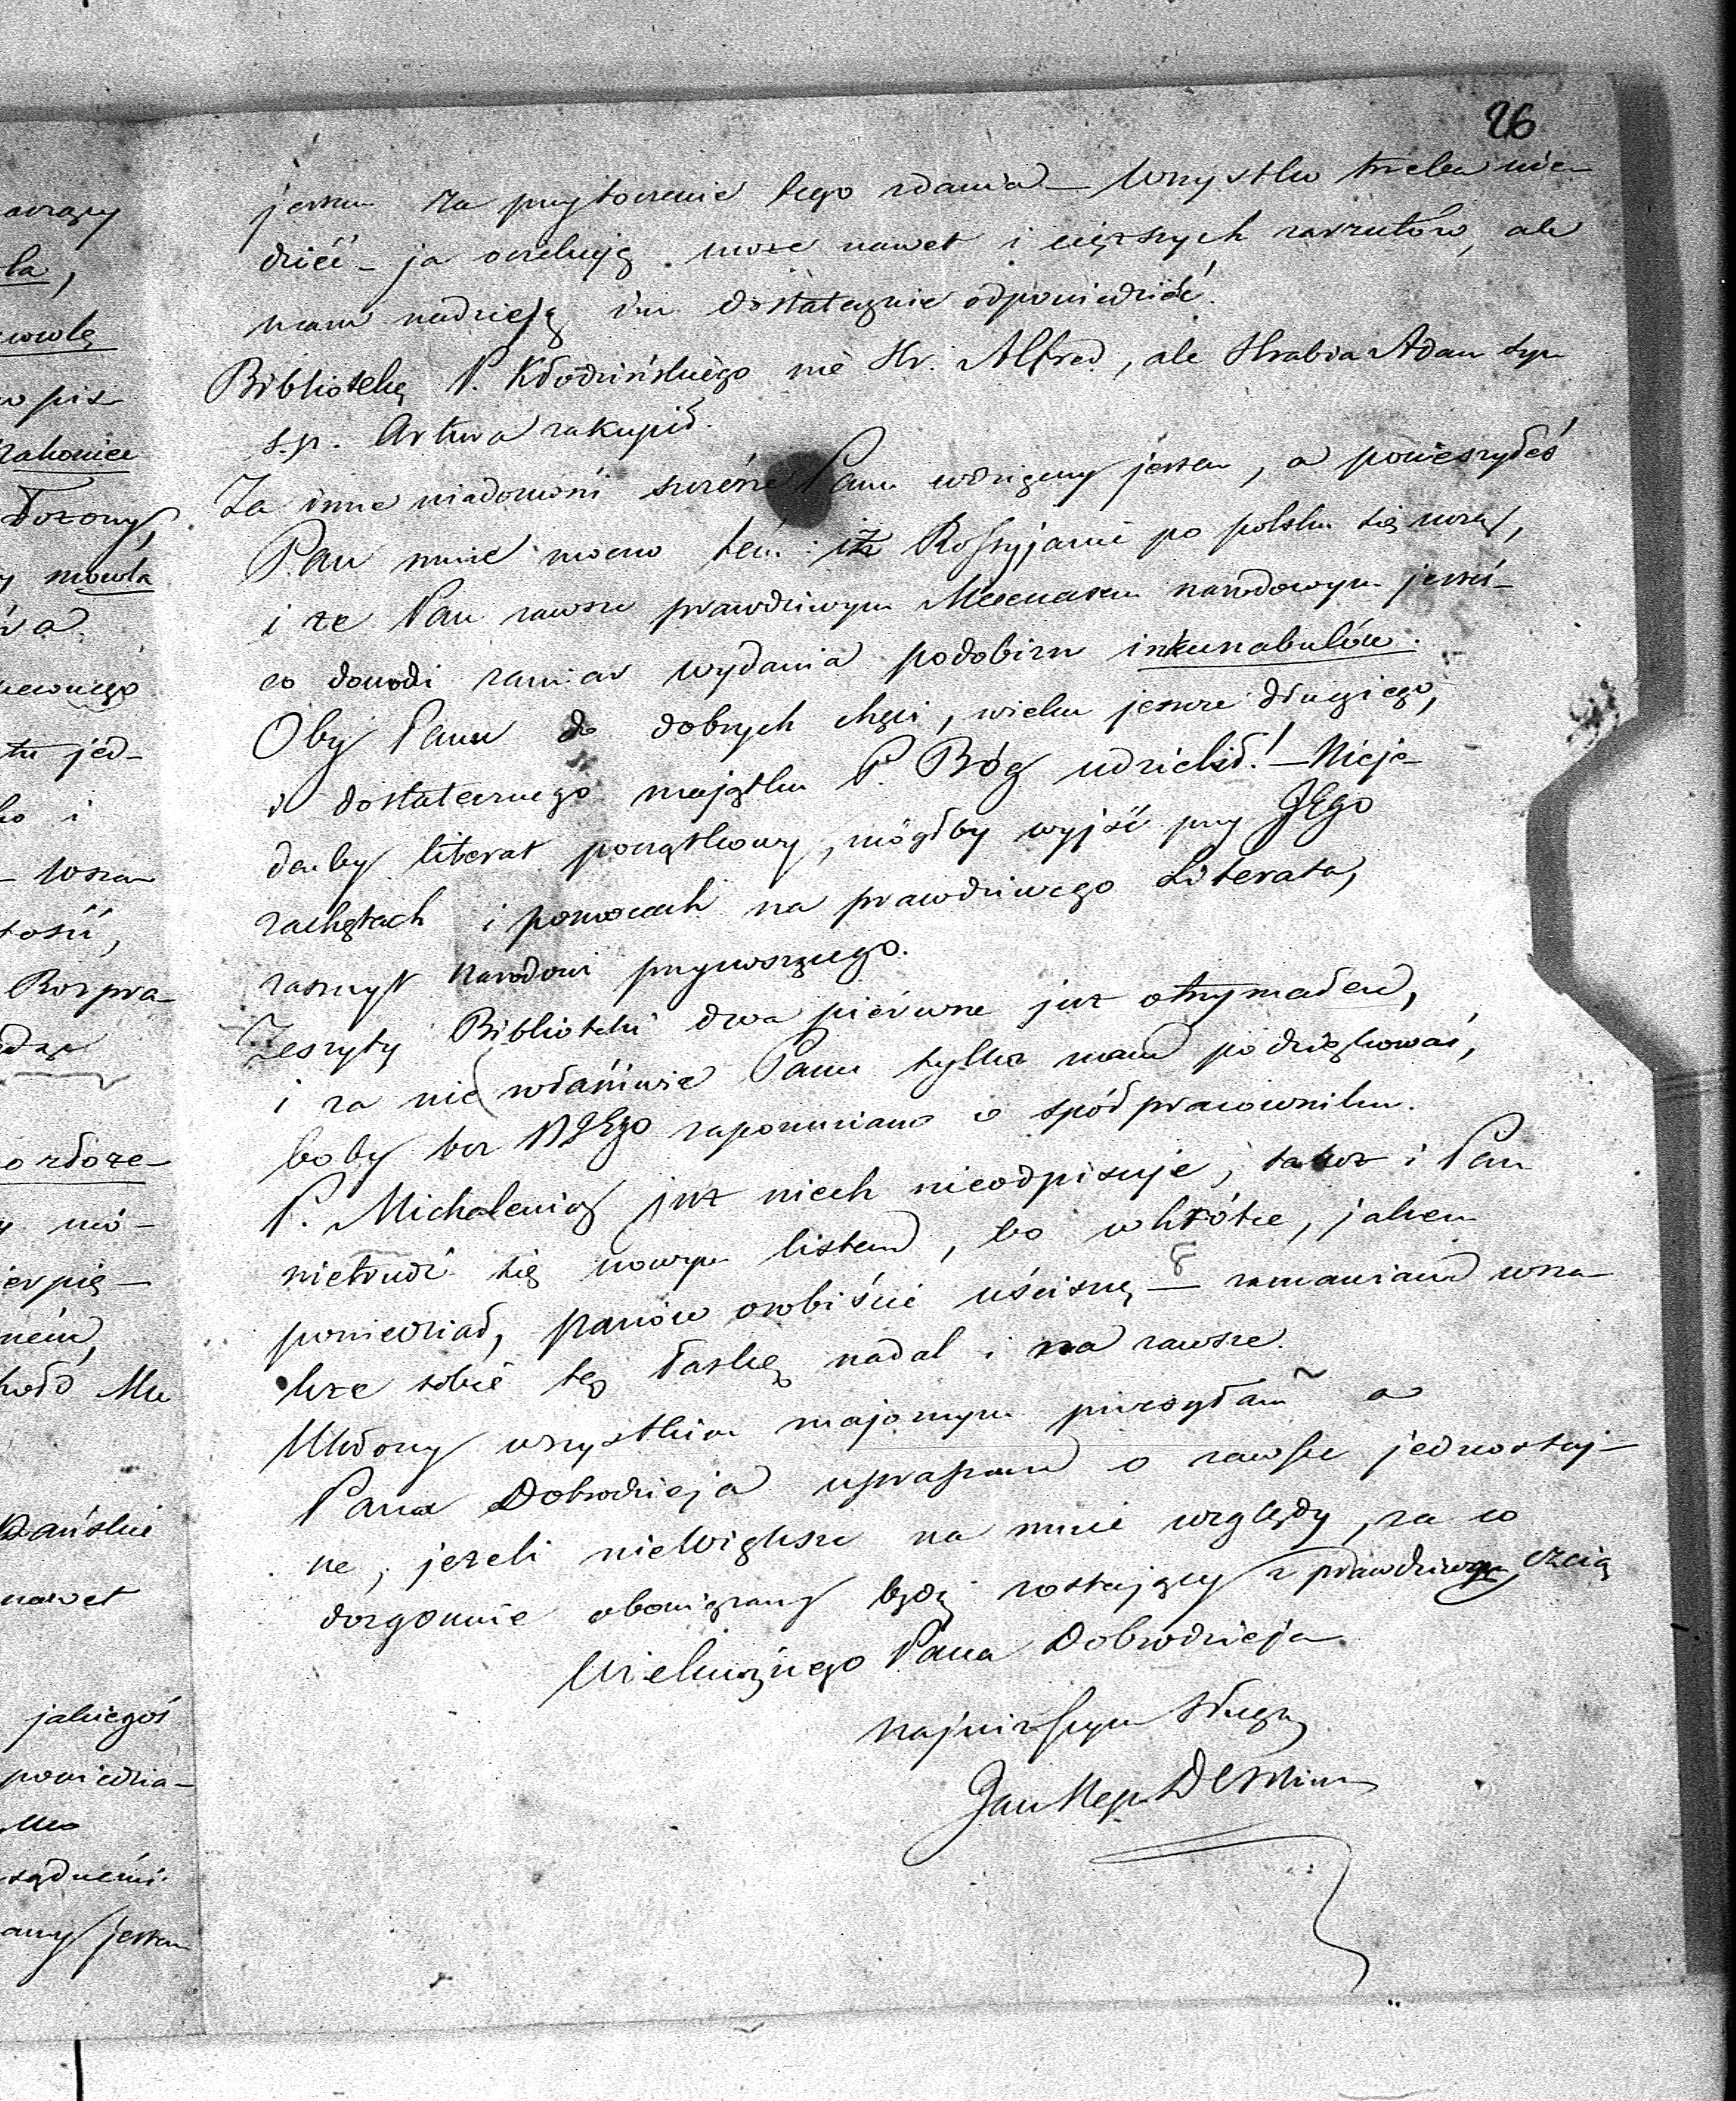 26
jestem za przytoczenie tego zdania — Wszystko trzeba wie-
dzieć — ja oczekuję może nawet i cięższych zarzutów, ale
mam nadzieję im dostatecznie odpowiedzieć.
Bibliotekę P. Kłodzińskiego nie Hr. Alfred, ale Hrabia Adam syn
s.p. Artura zakupił.
Za inne wiadomości szczérze Panu wdzięczny jestem, a pocieszyłeś
Pan mnie mocno tém: iż Rossyjanie po polsku się uczą,
i że Pan zawsze prawdziwym Mecenasem narodowym jesteś —
co dowodzi zamiar wydania podobizn inkunabulów.
Oby Panu do dobrych chęci, wieku jeszcze długiego,
i dostatecznego majątku P. Bóg udzielił! — Nieje-
den by literat początkowy, mógłby wyjść przy JEgo
zachętach i pomocach na prawdziwego Literata,
zaszczyt narodowi przynoszącego.
Zeszyty Biblioteki dwa piérwsze już otrzymałem,
i za nie właściwie Panu tylko mam podziękować,
boby bez JEgo zapomniano o spółpracowniku.
P. Michalewicz już niech nieodpisuje, także i Pan
nietrudź się nowym listem, bo wkrótce, jakem
powiedział, panów osobiście uścisnę — zamawiam wsza-
kże sobie tę łaskę nadal i na zawsze.
Ukłony wszystkim znajomym przesyłam a
Pana Dobrodzieja upraszam o zawsze jednostaj-
ne, jeżeli niewiększe na mnie względy, za co
dozgonnie obowiązany będę zostający z prawdziwą czcią
Wielmożnego Pana Dobrodzieja
najniższym sługą
Jan Nep.